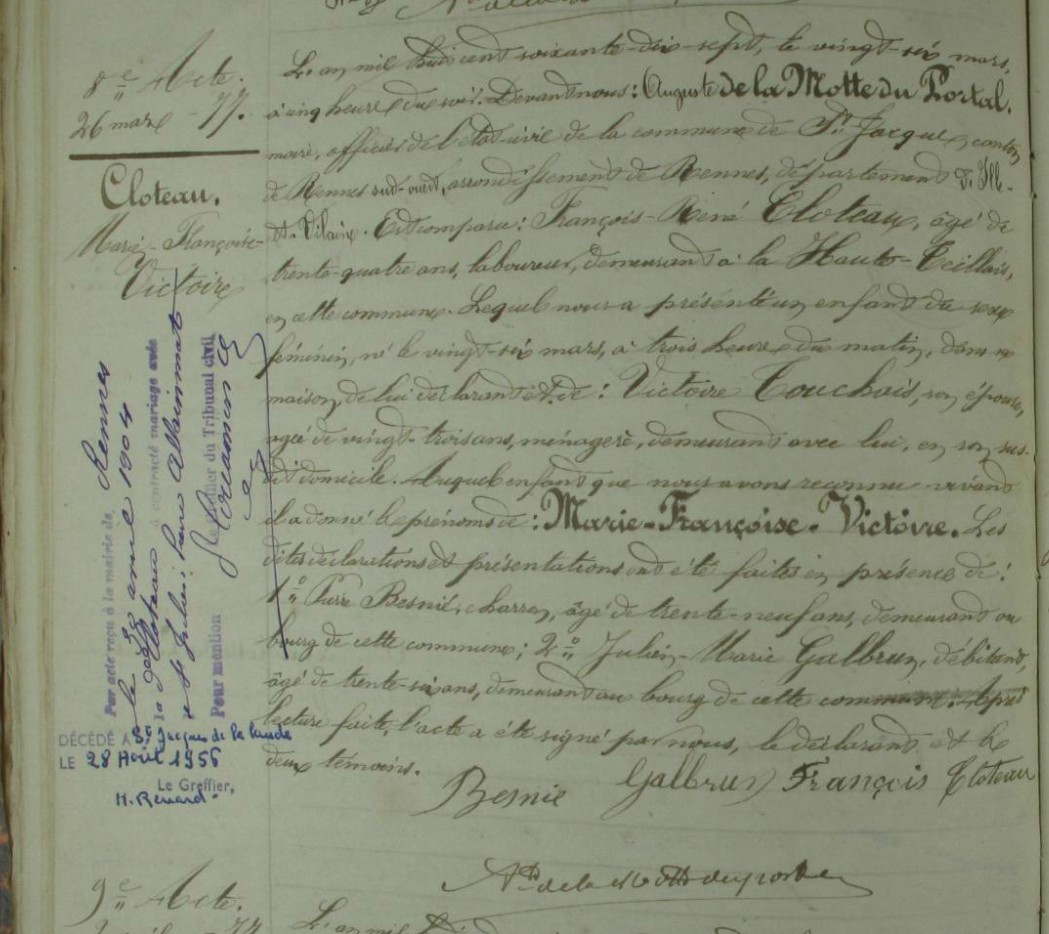 8e Acte.
26 mars 77.
Cloteau,
Marie-Françoise-
Victoire
L'an mil huit cent soixante-dix-sept, le vingt-six mars,
à cinq heure du soir. Devant nous: Auguste de la Motte du Portal,
maire, officier de l'état-civil de la commune de St Jacques, canton
de Rennes sud-ouest, arrondissement de Rennes, département d'Ille-
et-Vilaine. Est comparu: François-René Cloteau, âgé de
trente-quatre ans, laboureur, demeurant à la Haute-Teillais,
en cette commune. Lequel nous a présenté un enfant du sexe
féminin, né le vingt-six mars, à trois heure du matin, dans sa
maison, de lui déclarant et de: Victoire Touchais, son épouse,
agée de vingt-trois ans, ménagère, demeurant avec lui, en son sus-
dit domicile. Auquel enfant que nous avons reconnu vivant
il a donné le prénoms de: Marie-Françoise-Victoire. Les
dites déclarations et présentations ont été faites en présence de:
1° Pierre Besnié, charron, âgé de trente-neuf ans, demeurant au
bourg de cette commune; 2° Julien-Marie Galbrun, débitant,
âgé de trente-six ans, demeurant au bourg de cette commune. Après
lecture faite, l'acte a été signé par nous, le déclarant et les
deux témoins.
Besnié Galbrun François Cloteau
Ate de la Motte du portal
Par acte reçu à la mairie de Rennes
le 1904
la dite Cloteau a contracté mariage avec
Julien
Pour mention Le Greffier du Tribunal civil
DÉCÉDÉ A St Jacques de la Lande
LE 28 Avril 1956
Le Greffier,
H. Renard
9e Acte.
77
L'an mil